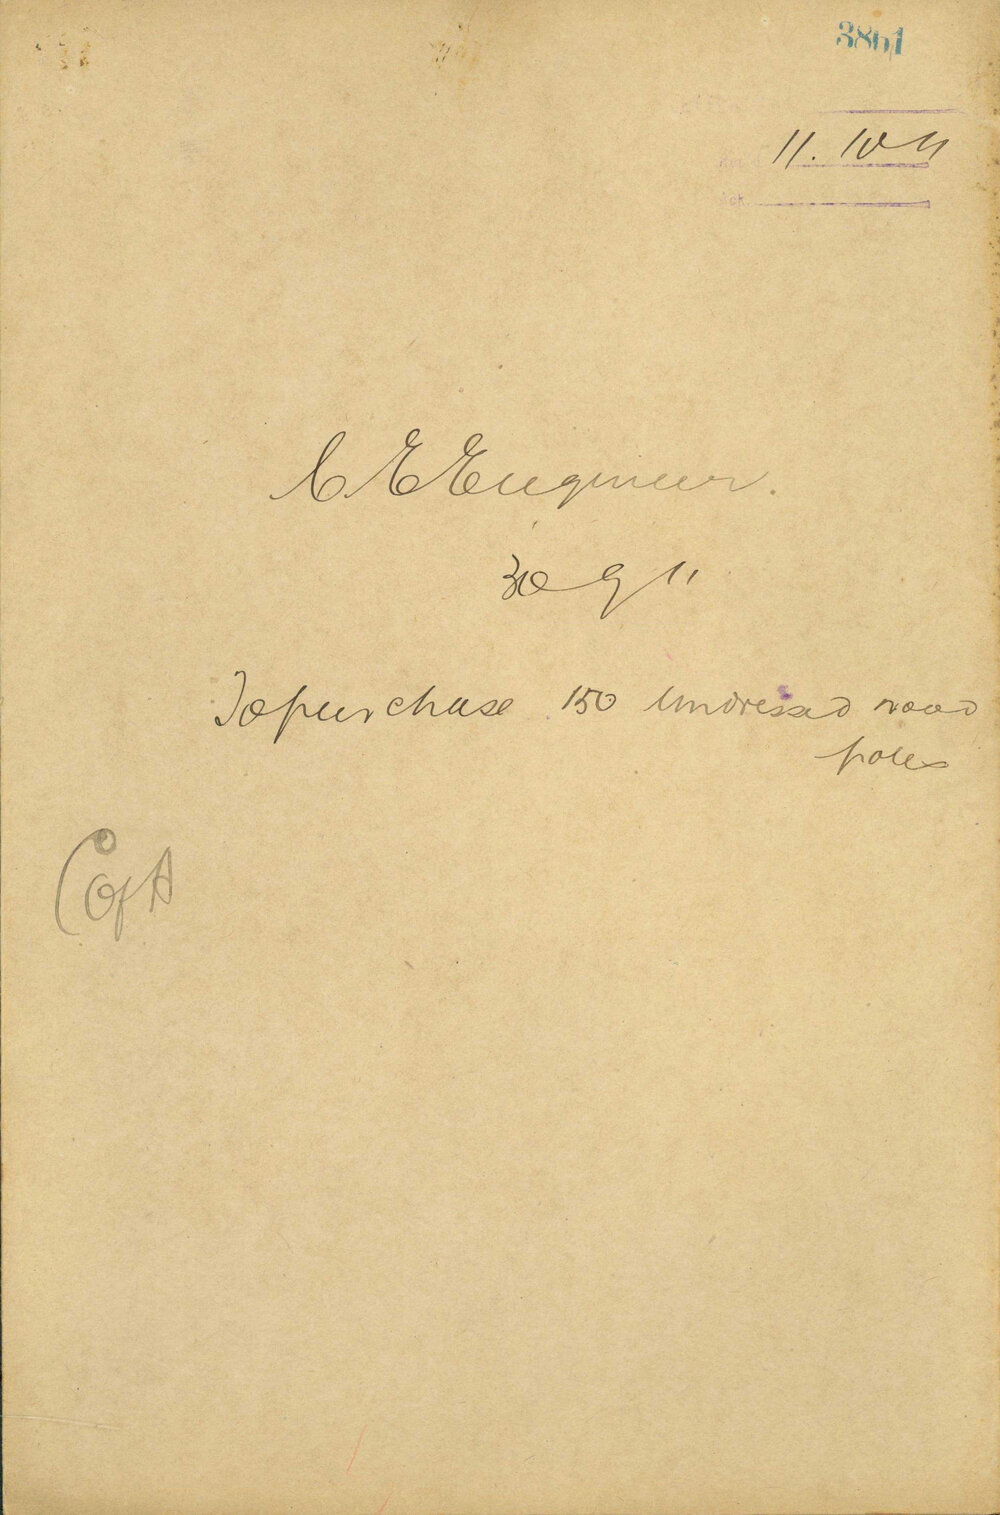 3861
11. 10 11
Ack.
C E Engineer.
30 9 11
To purchase 150 undressed wood
poles
C of A